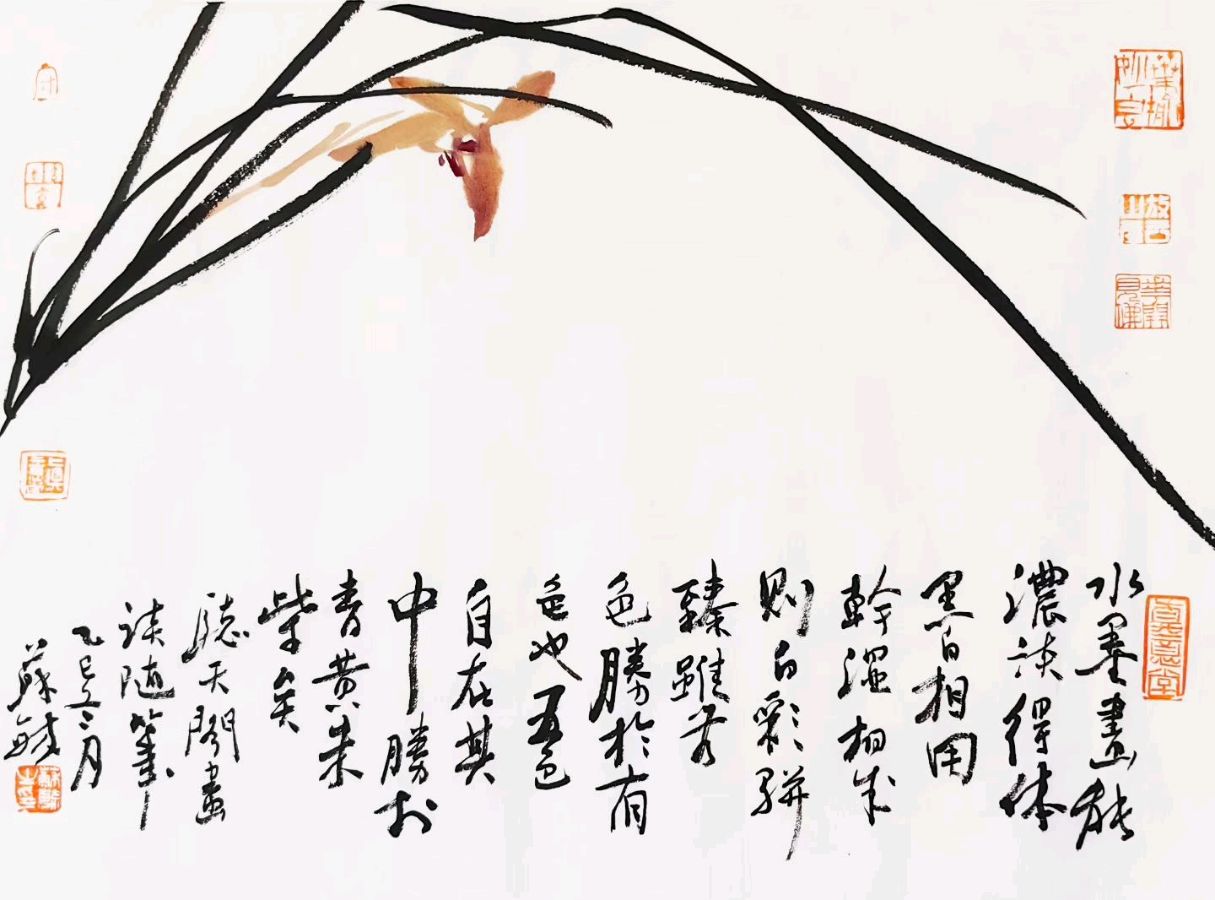 水墨畫能
濃淡得体
黑白相用
幹濕相成
則百彩駢
臻雖無
色勝於有
色也五色
自在其
中勝於
青黃朱
紫矣
聽天閣畫
談隨筆
乙巳三月
蘇